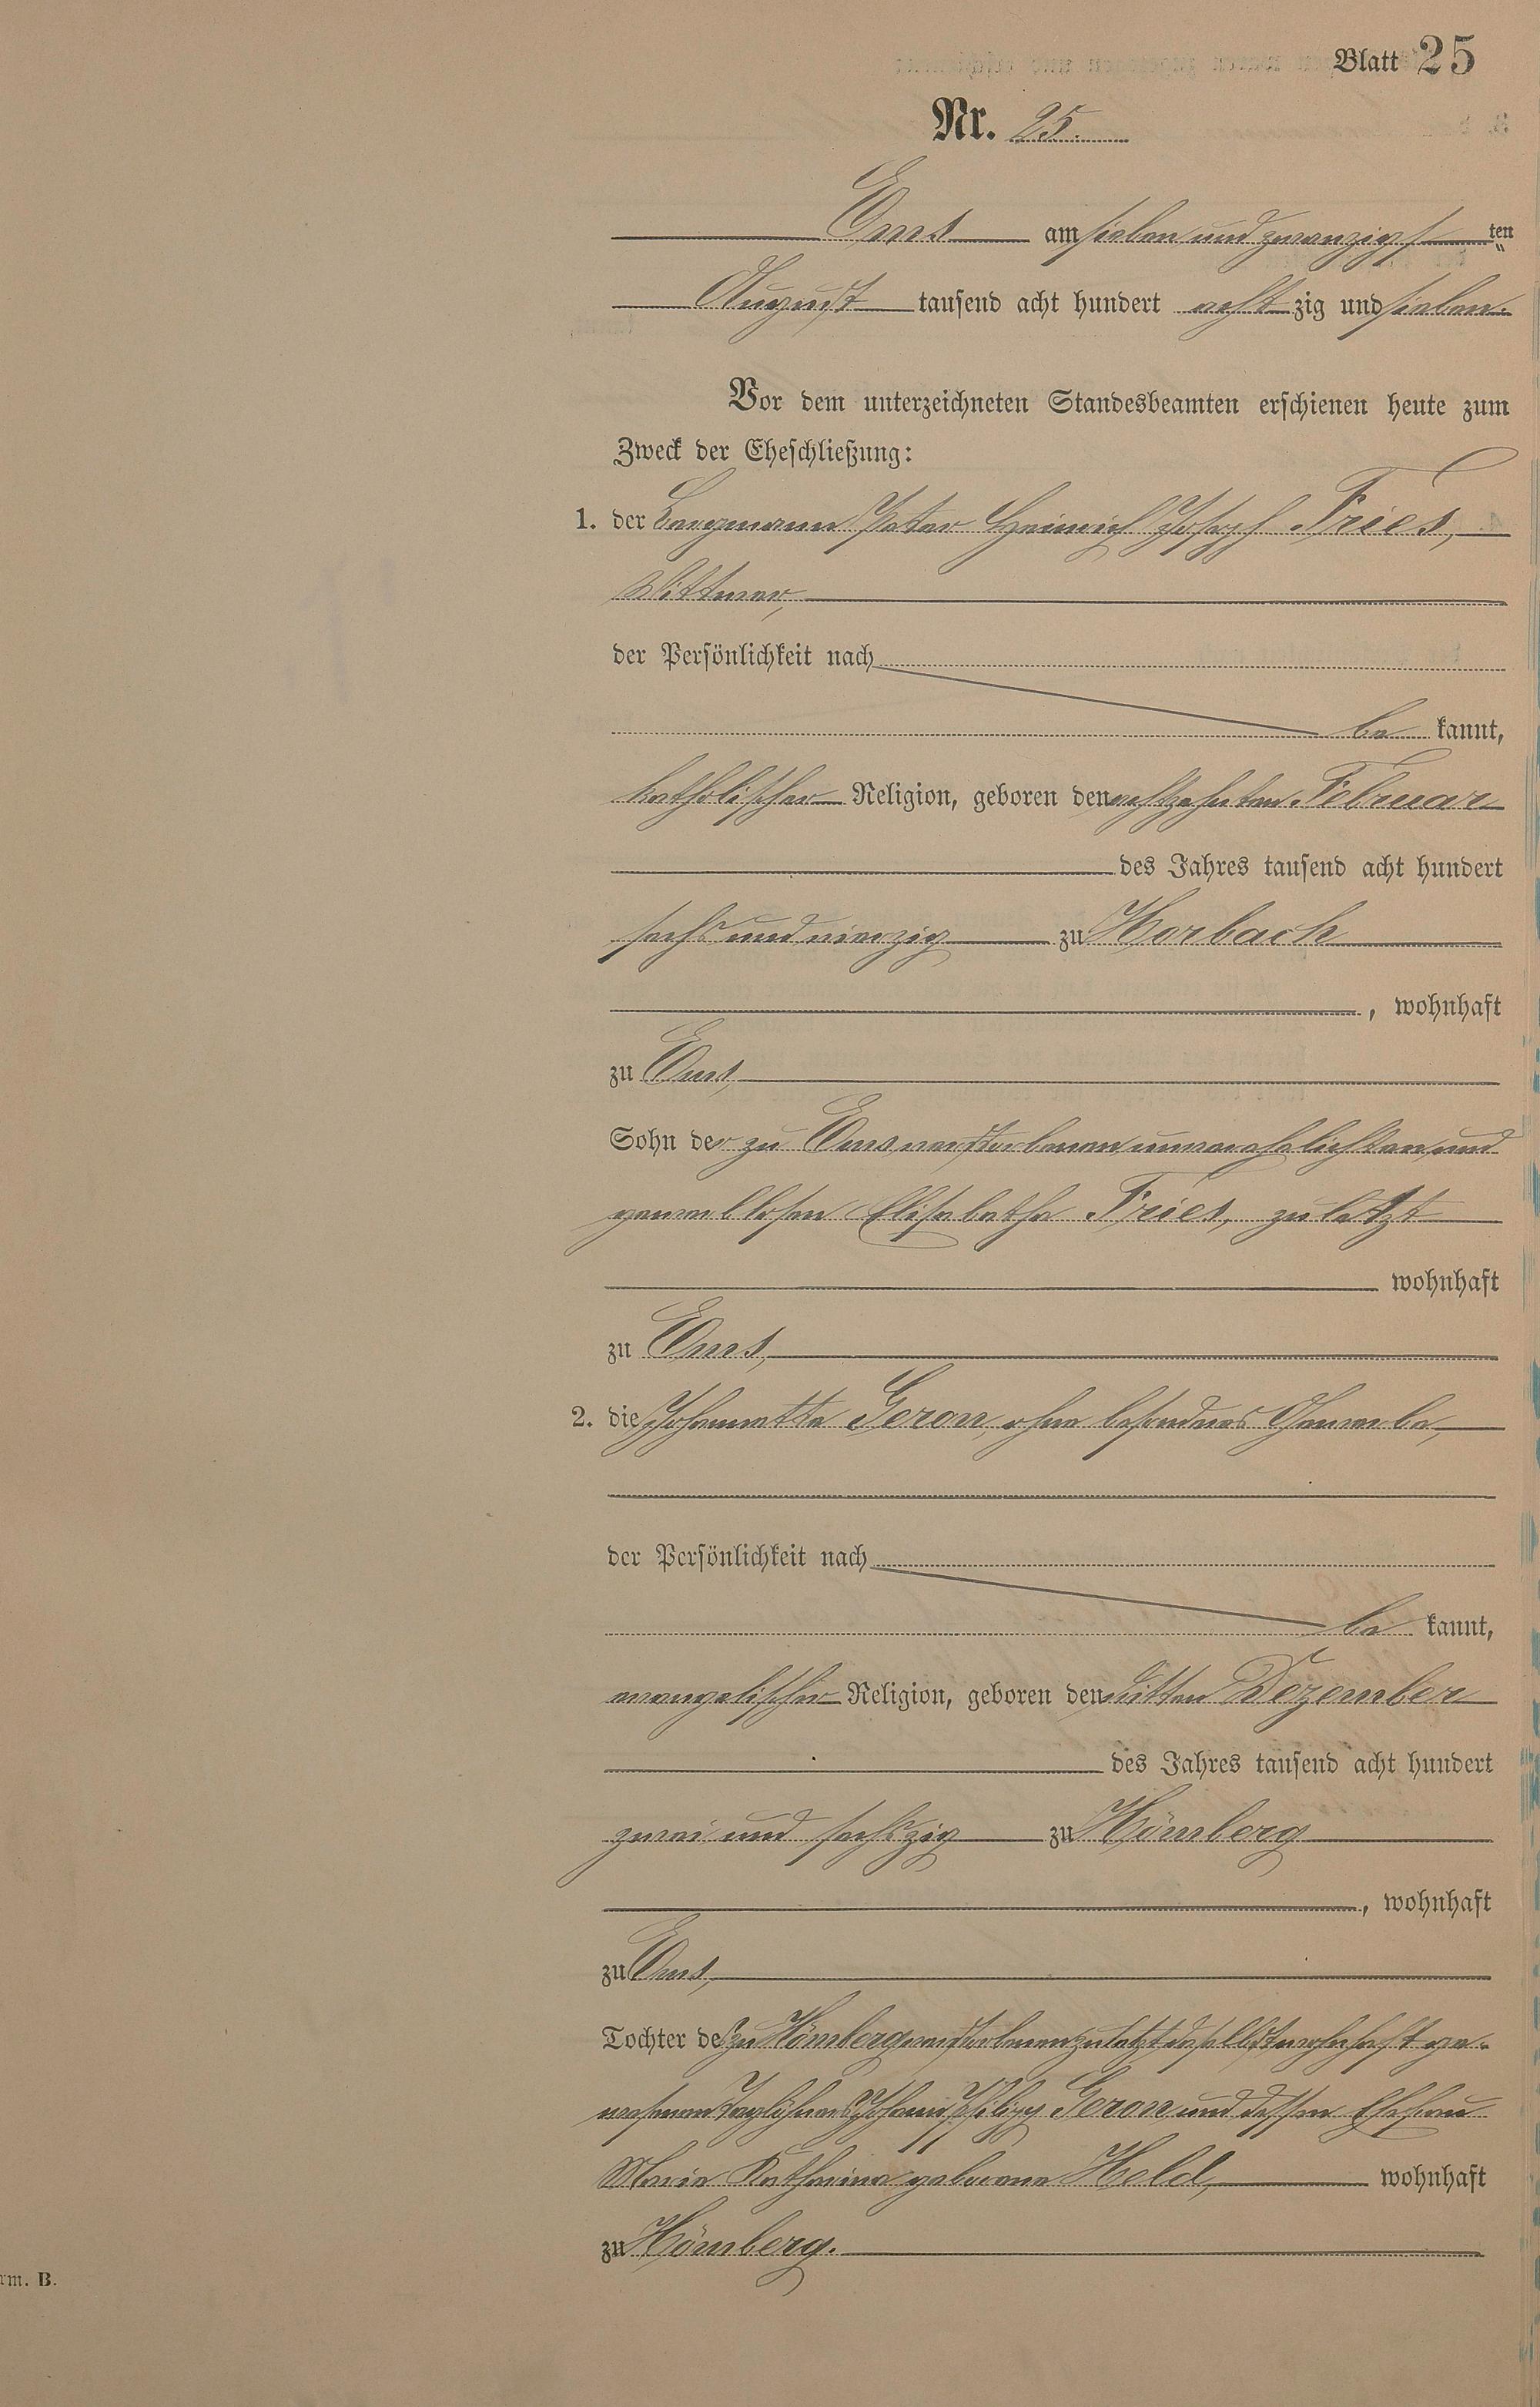 Blatt 25
Nr. 25.
Ems am sieben und zwanzigsten
August tausend acht hundert achtzig und sieben.
Vor dem unterzeichneten Standesbeamten erschienen heute zum
Zweck der Eheschließung:
1. der Bergmann Peter Heinrich Joseph Fries,
Wittwer,
der Persönlichkeit nach
be kannt,
katholischer Religion, geboren den achtzehnten Februar
des Jahres tausend acht hundert
sechs und vierzig zu Horbach
, wohnhaft
zu Ems,
Sohn der zu Ems verstorbenen unverehelichten und
gewerblosen Elisabetha Fries, zuletzt
wohnhaft
zu Ems,
2. die Johannette Geron, ohne besonderes Gewerbe,
der Persönlichkeit nach
be kannt,
evangelischer Religion, geboren den dritten Dezember
des Jahres tausend acht hundert
zwei und sechszig zu Hömberg
, wohnhaft
zu Ems,
Tochter des zu Hömberg verstorbenen zuletzt daselbst wohnhaft ge-
wesenen Taglöhners Johann Philipp Geron und dessen Ehefrau
Marie Katharina geborene Held, wohnhaft
zu Hömberg.
rm. B.